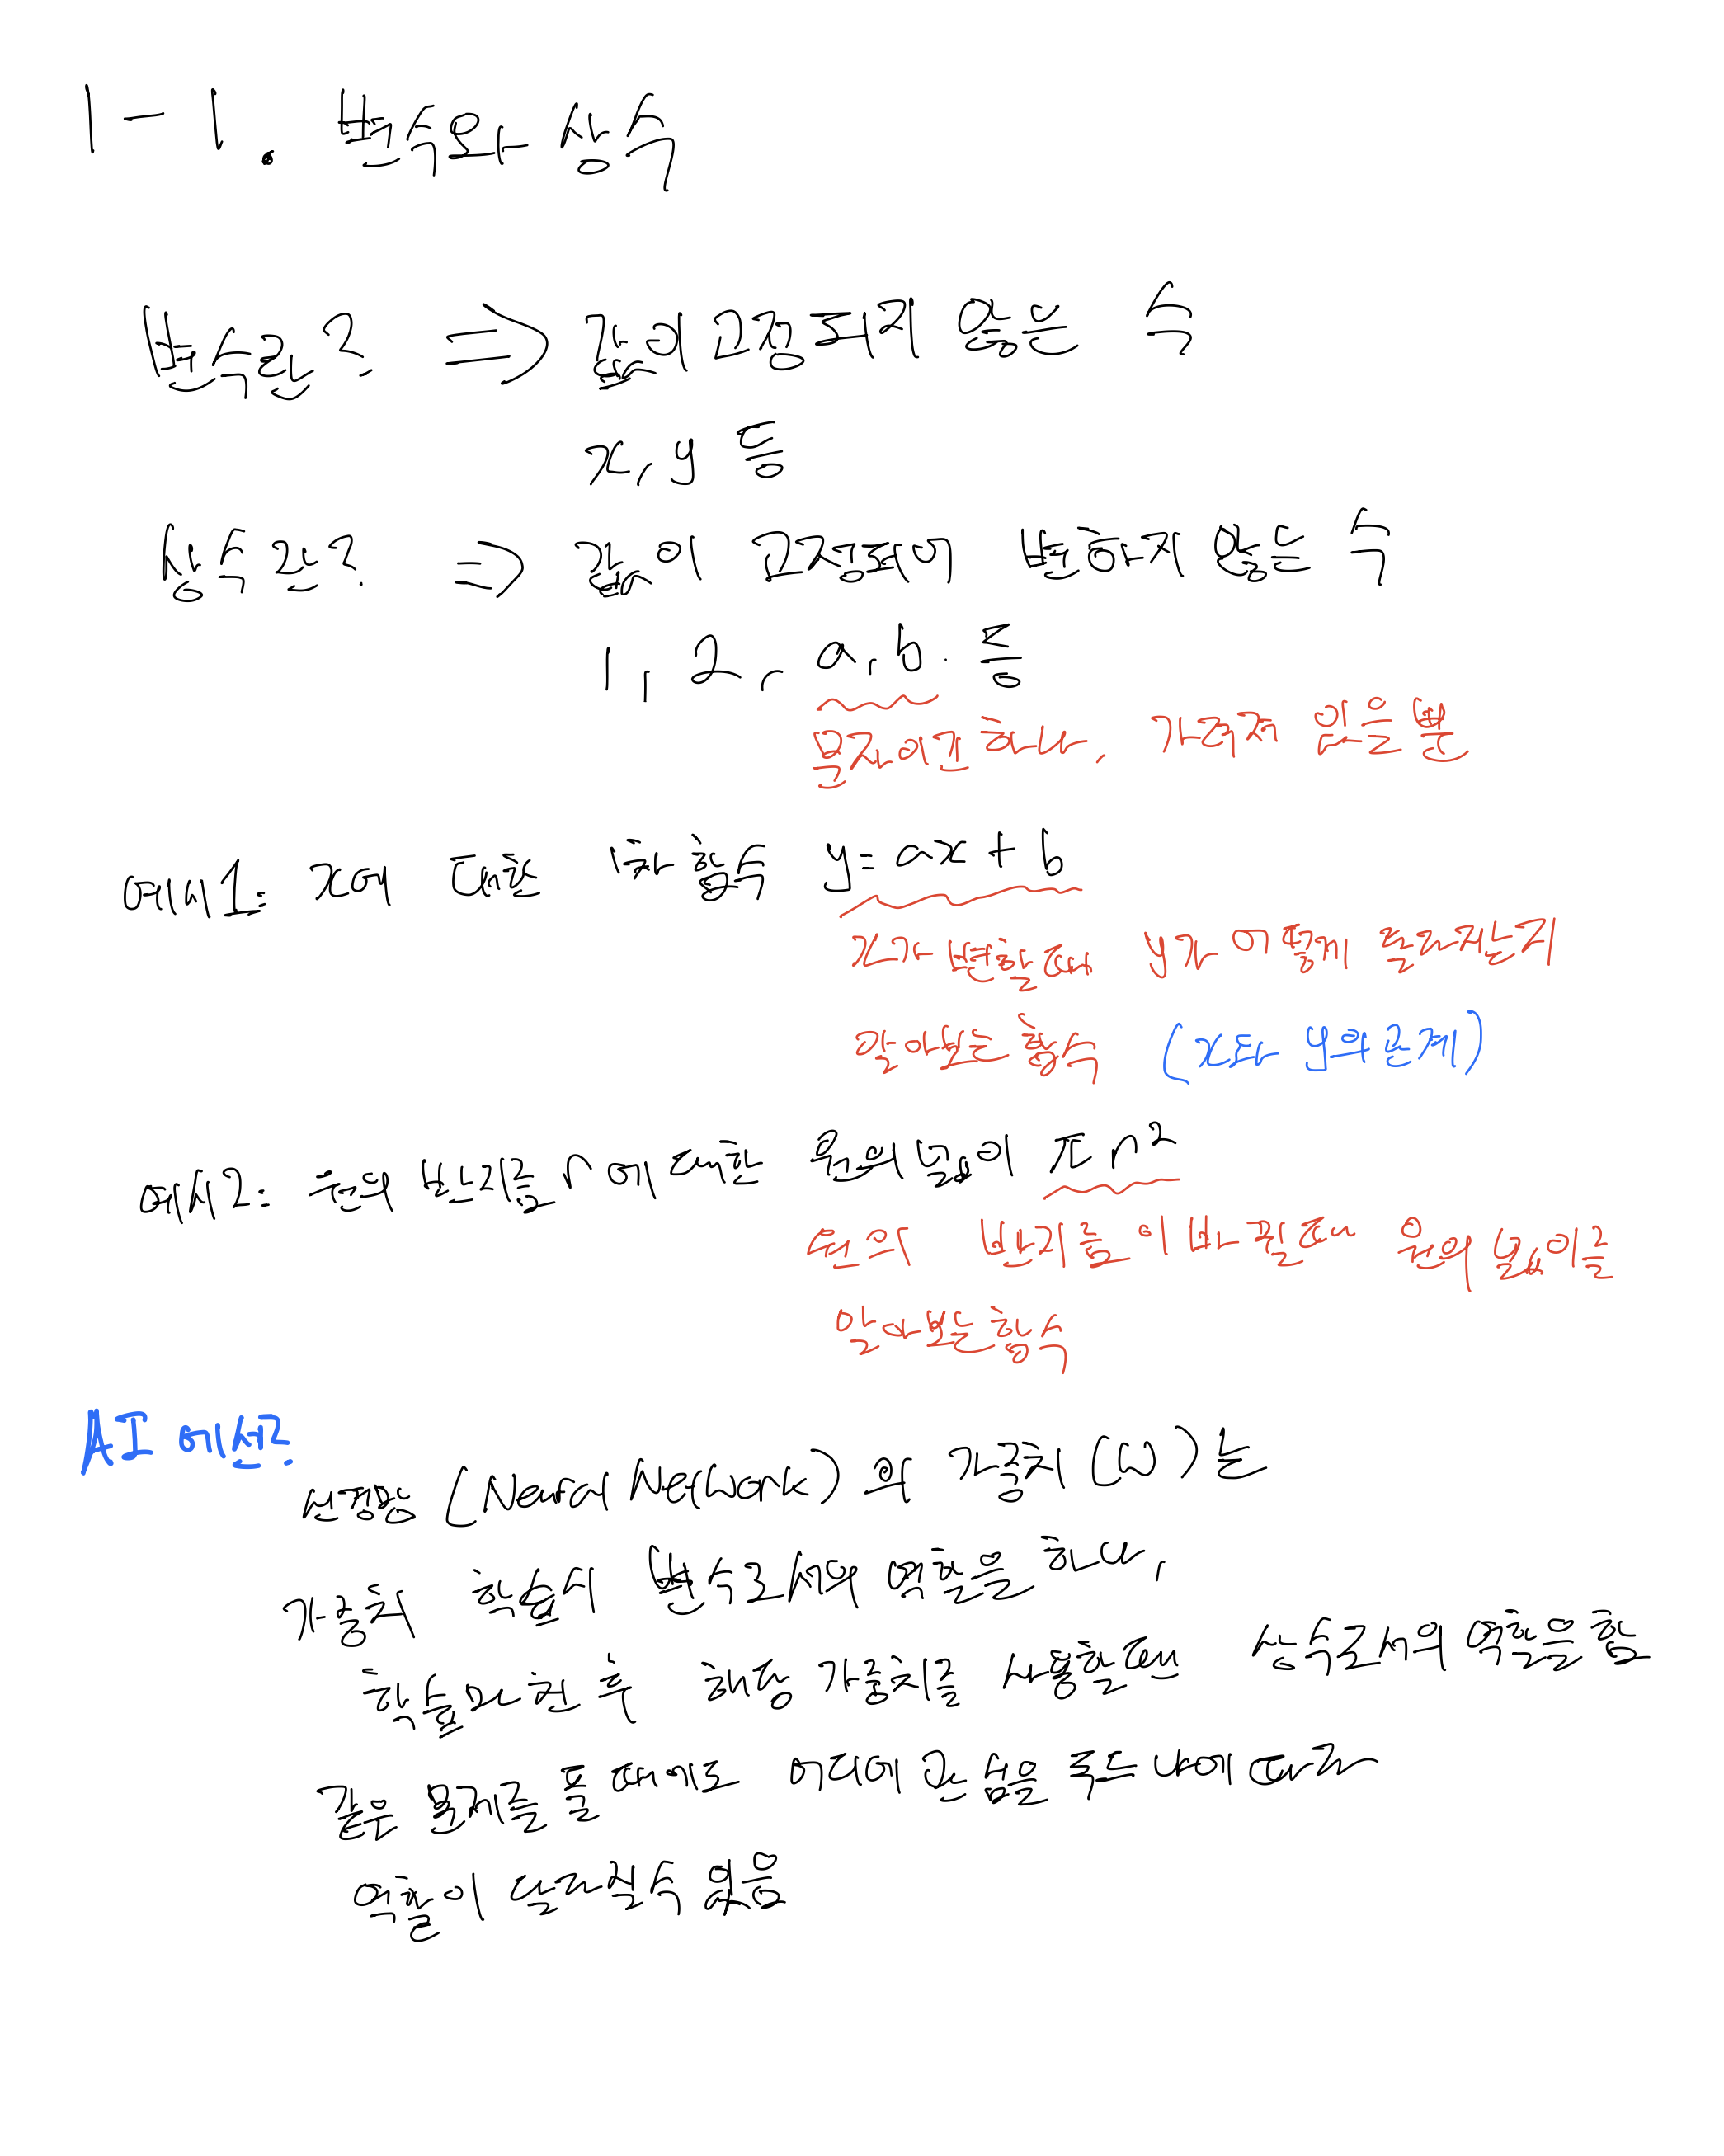 1-1. 변수와 상수
변수란? ⇒ 값이 고정되지 않은 수
x, y 등
상수란? ⇒ 값이 고정되어 변하지 않는 수
1, 2, a, b. 등
문자이긴 하나, 가려져 있을 뿐
예시1: x에 대한 1차 함수 y = ax + b
x가 변할때 y가 어떻게 달라지는지
알아보는 함수 (x와 y의 관계)
예시2: 원의 반지름 r에 대한 원의 넓이 πr²
원의 반지름이 바뀔때 원의 넓이를
알아보는 함수
AI 에선?
신경망 (Neural Network)의 가중치 (W)는
가중치 학습시 변수로서의 역할을 하나,
학습 완료 후 해당 가중치를 사용할땐 상수로서의 역할을 함
같은 문제를 풀 때에도 어디에 관심을 두느냐에 따라
역할이 달라질수 있음